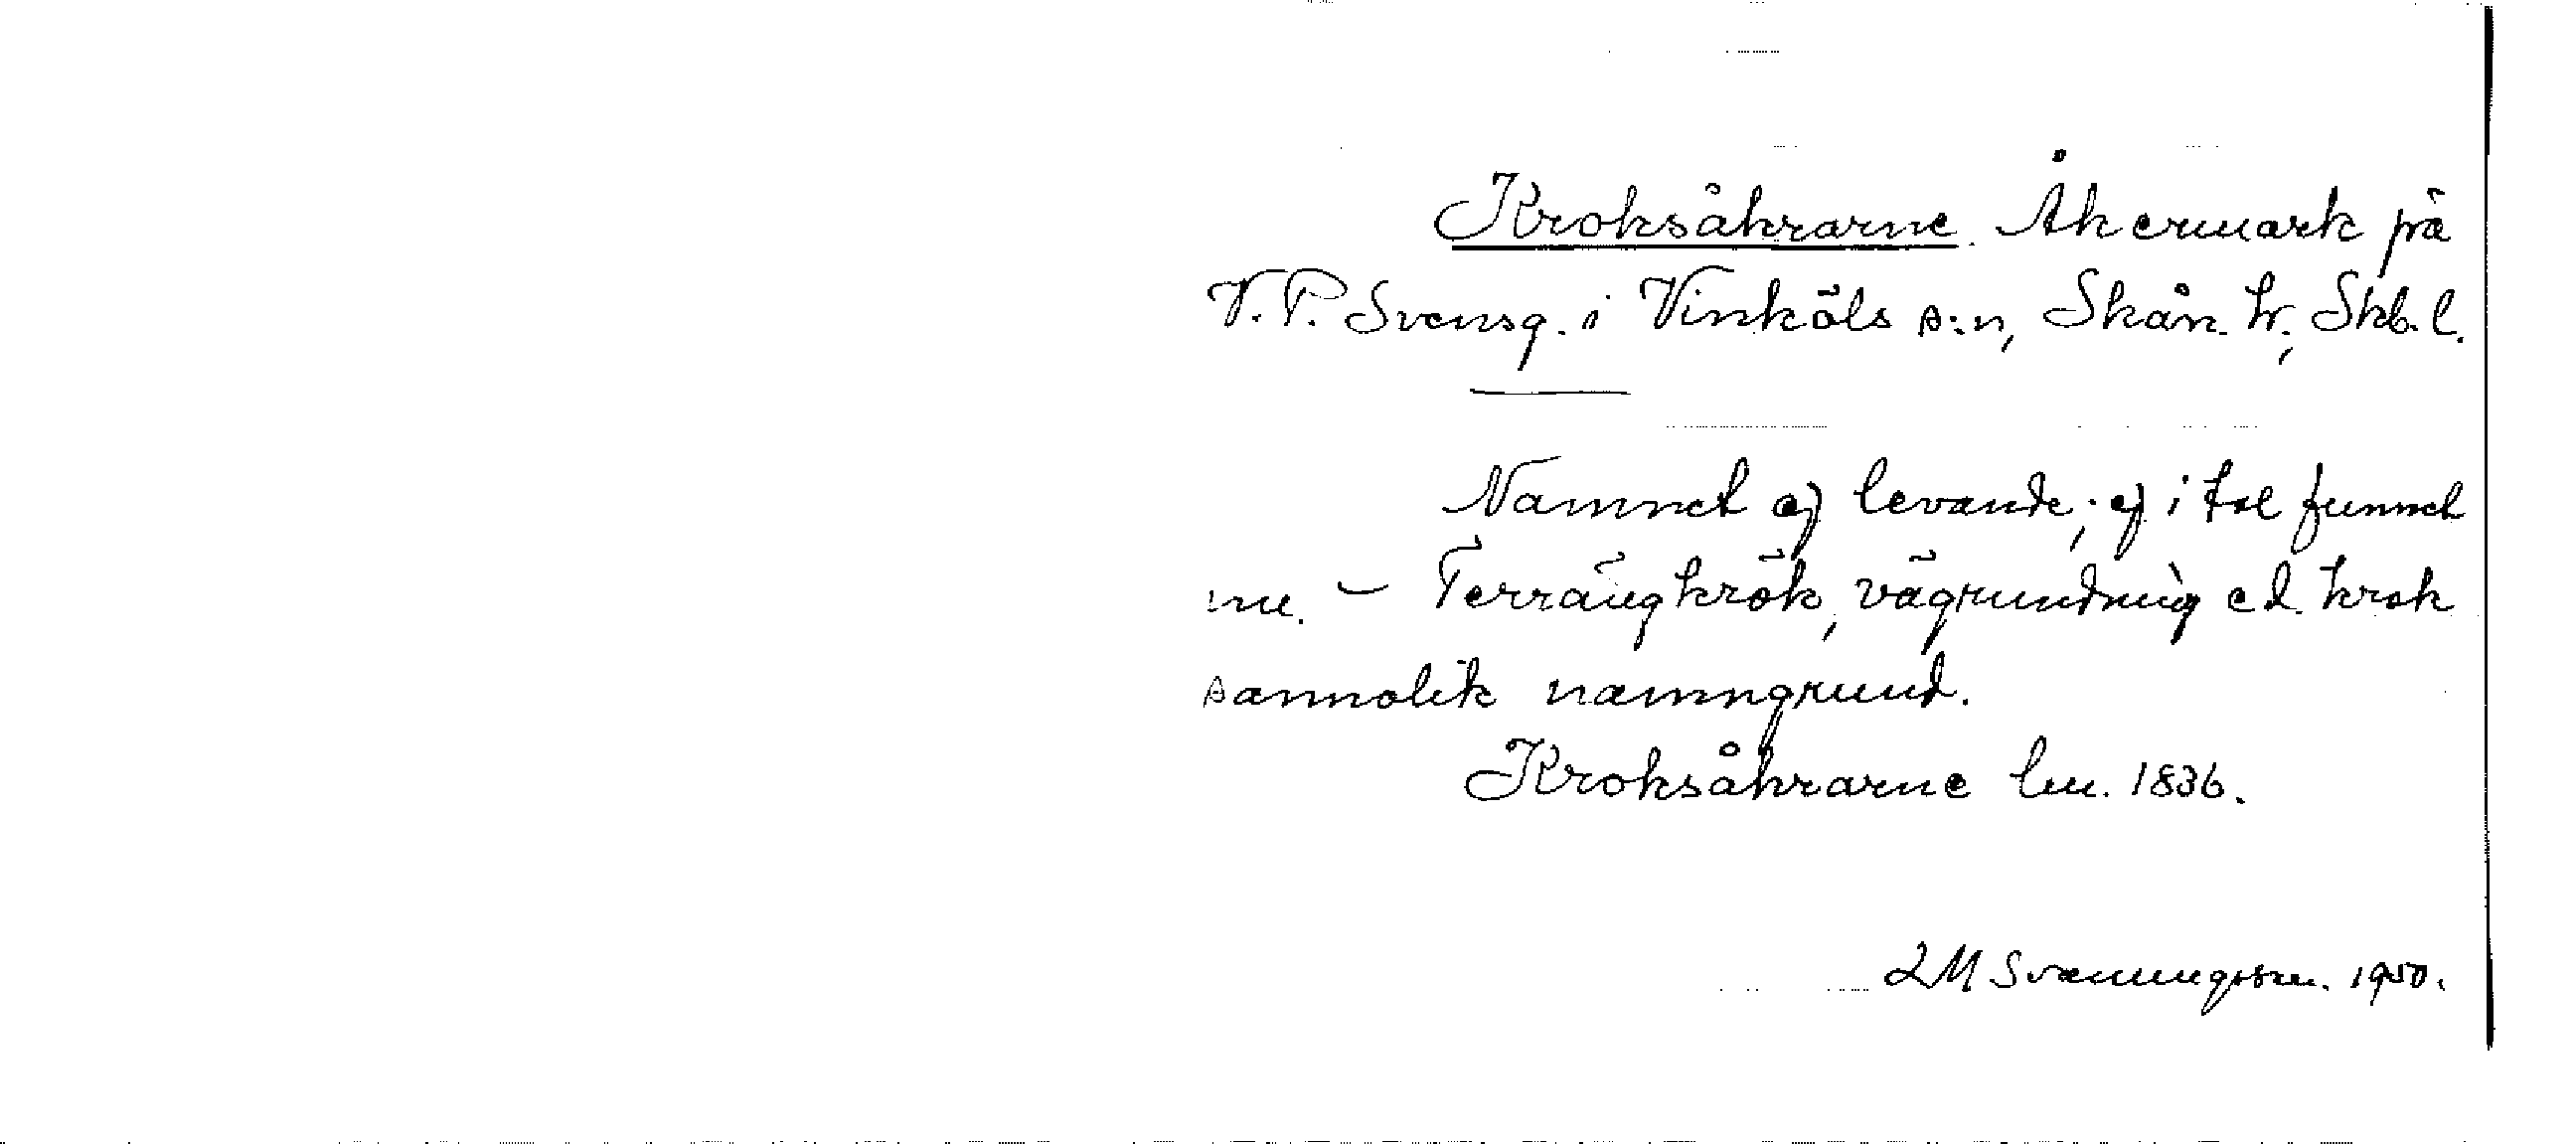 Kroksåkrarne. Åkermark på
V. P. Svensg. i Vinköls s:n, Skån. hr, Skb. l.
Namnet ej levande; ej i tal funnet
nu. – Terrängkrök, vägrundning el. krok
sannolik namngrund.
Kroksåkrarne lm. 1836.
LM Svenungsson. 1950.